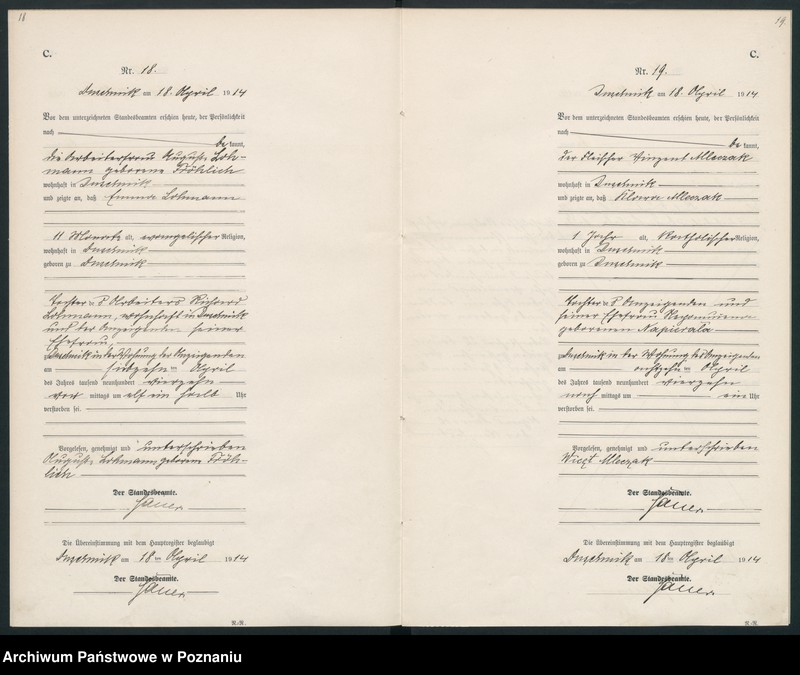 18
C.
Nr. 18.
am 18. April 1914
Vor dem unterzeichneten Standesbeamten erschien heute, der Persönlichkeit
nach
be kannt,
die Arbeiterfrau Auguste Loh-
mann geborene Fröhlich
wohnhaft in
und zeigte an, daß Emma Lohmann
11 Monate alt, evangelischer Religion,
wohnhaft in
geboren zu
Tochter des Arbeiters Richard
Lohmann, wohnhaft in
und der Anzeigenden seiner
Ehefrau,
in der Wohnung der Anzeigenden
am siebzehn ten April
des Jahres tausend neunhundert vierzehn
vor mittags um elf ein halb Uhr
verstorben sei.
Vorgelesen, genehmigt und unterschrieben
Auguste Lohmann geborene Fröh-
lich
Der Standesbeamte.
Die Übereinstimmung mit dem Hauptregister beglaubigt
am 18 ten April 1914
Der Standesbeamte.
19.
C.
Nr. 19.
am 18. April 1914
Vor dem unterzeichneten Standesbeamten erschien heute, der Persönlichkeit
nach
be kannt,
der Fleischer Vinzent Mleczak
wohnhaft in
und zeigte an, daß Klara Mleczak
1 Jahr alt, katholischer Religion,
wohnhaft in
geboren zu
Tochter des Anzeigenden und
seiner Ehefrau
geborenen Napierala
in der Wohnung des Anzeigenden
am achtzehn ten April
des Jahres tausend neunhundert vierzehn
nach mittags um ein Uhr
verstorben sei.
Vorgelesen, genehmigt und unterschrieben
Mleczak
Der Standesbeamte.
Die Übereinstimmung mit dem Hauptregister beglaubigt
am 18 ten April 1914
Der Standesbeamte.
Archiwum Państwowe w Poznaniu